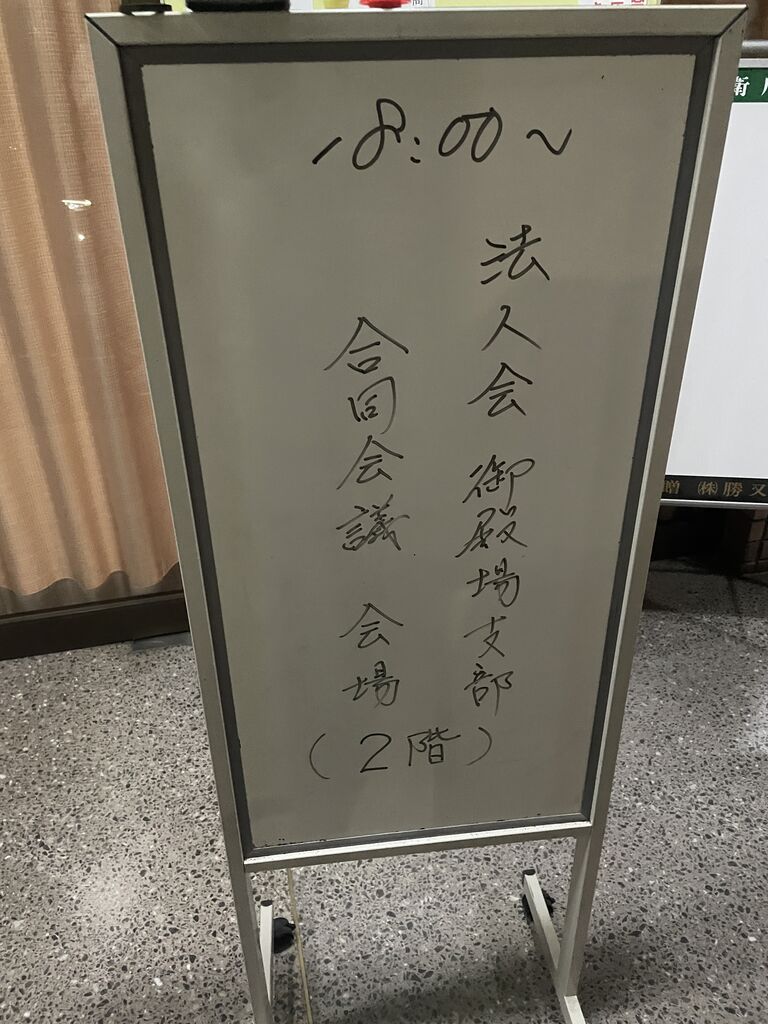 18:00~
法人会 御殿場支部
合同会議 会場
(2階)
贈 ㈱勝又